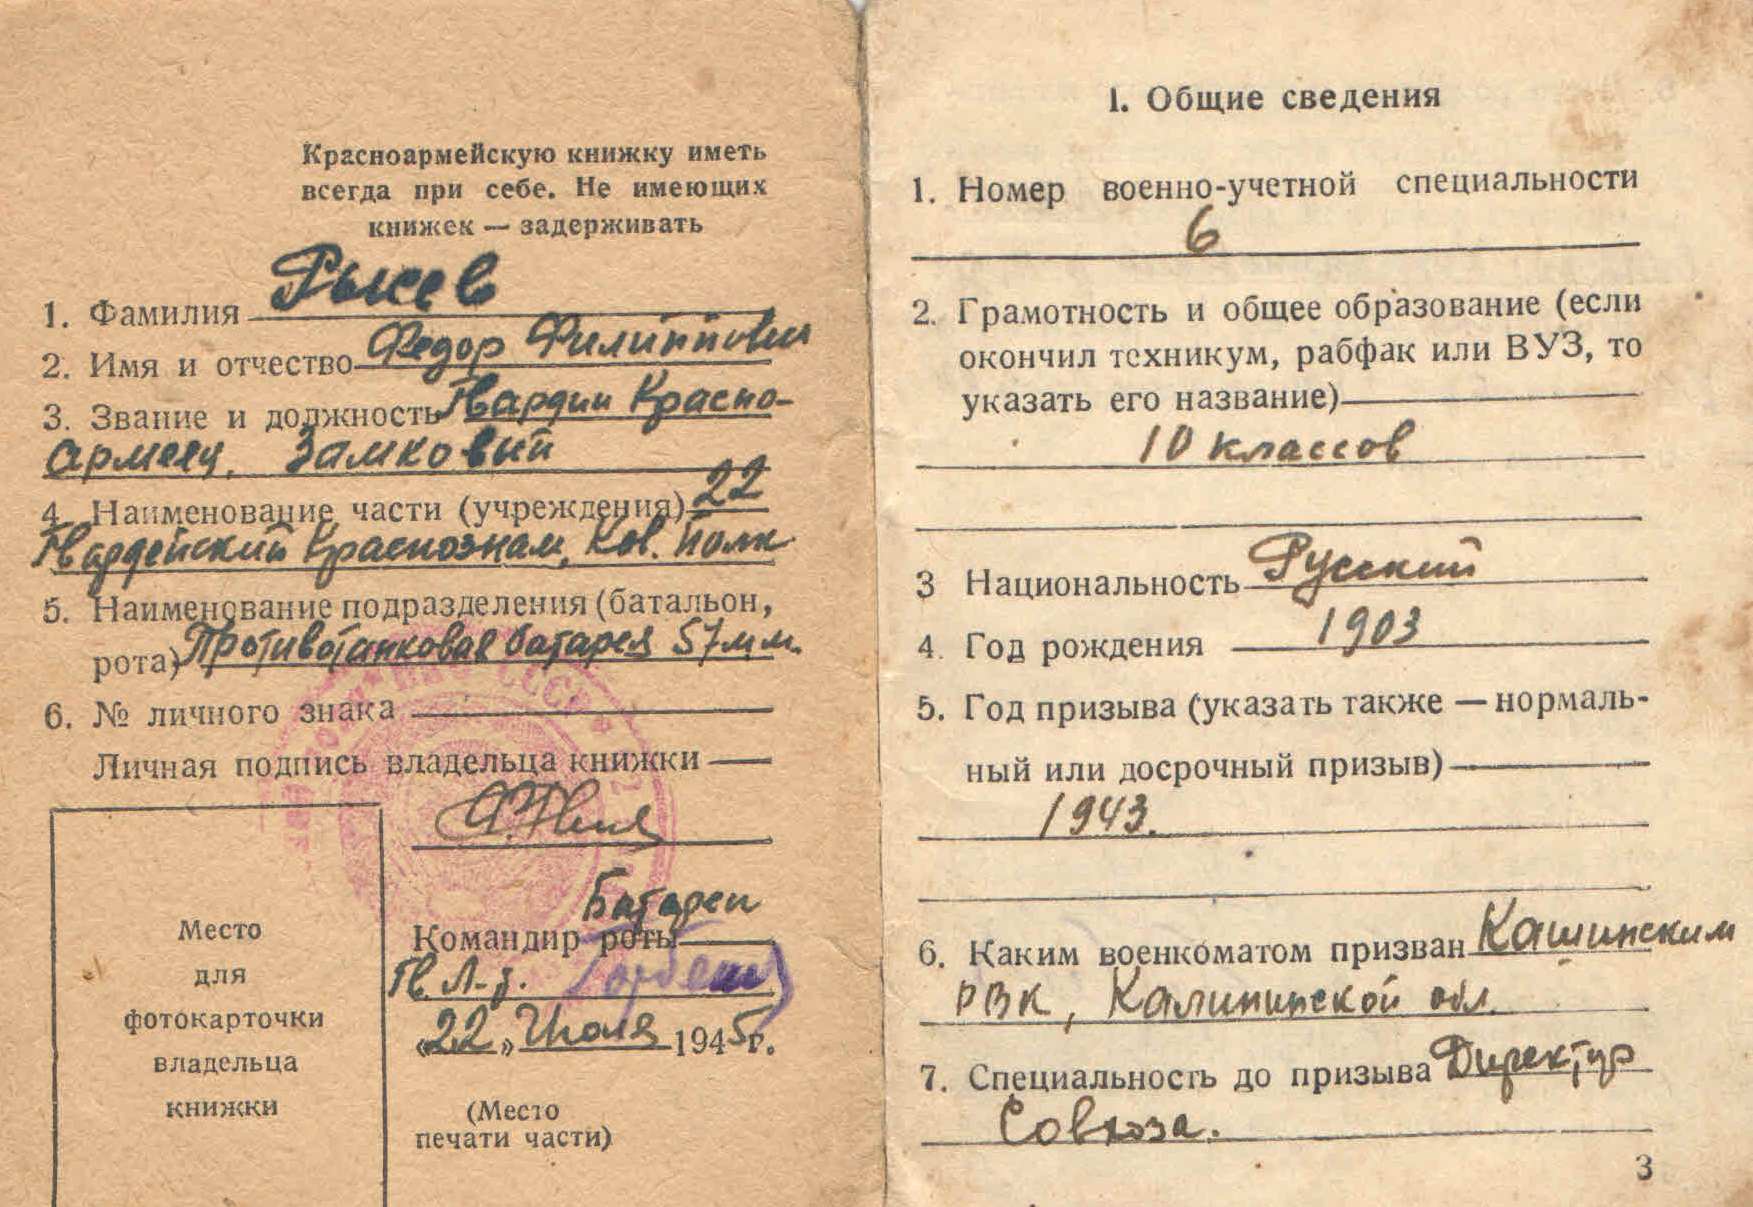 Красноармейскую книжку иметь
всегда при себе. Не имеющих
книжек — задерживать
1. Фамилия
2. Имя и отчество Федор Филиппович
3. Звание и должность Гвардии Красно-
армеец, Замковый
4. Наименование части (учреждения) 22
Гвардейский Краснознам. Кав. Полк
5. Наименование подразделения (батальон,
рота) Противотанковая батарея 57 мм.
6. № личного знака
Личная подпись владельца книжки
Батареи
Командир роты
Гв. Л-т.
«22» Июля 1945 г.
(Место
печати части)
Место
для
фотокарточки
владельца
книжки
I. Общие сведения
1. Номер военно-учетной специальности
6
2. Грамотность и общее образование (если
окончил техникум, рабфак или ВУЗ, то
указать его название)
10 классов
3 Национальность Русский
4. Год рождения 1903
5. Год призыва (указать также — нормаль-
ный или досрочный призыв)
1943.
6. Каким военкоматом призван Кашинским
РВК, Калининской обл.
7. Специальность до призыва Директор
Совхоза.
3